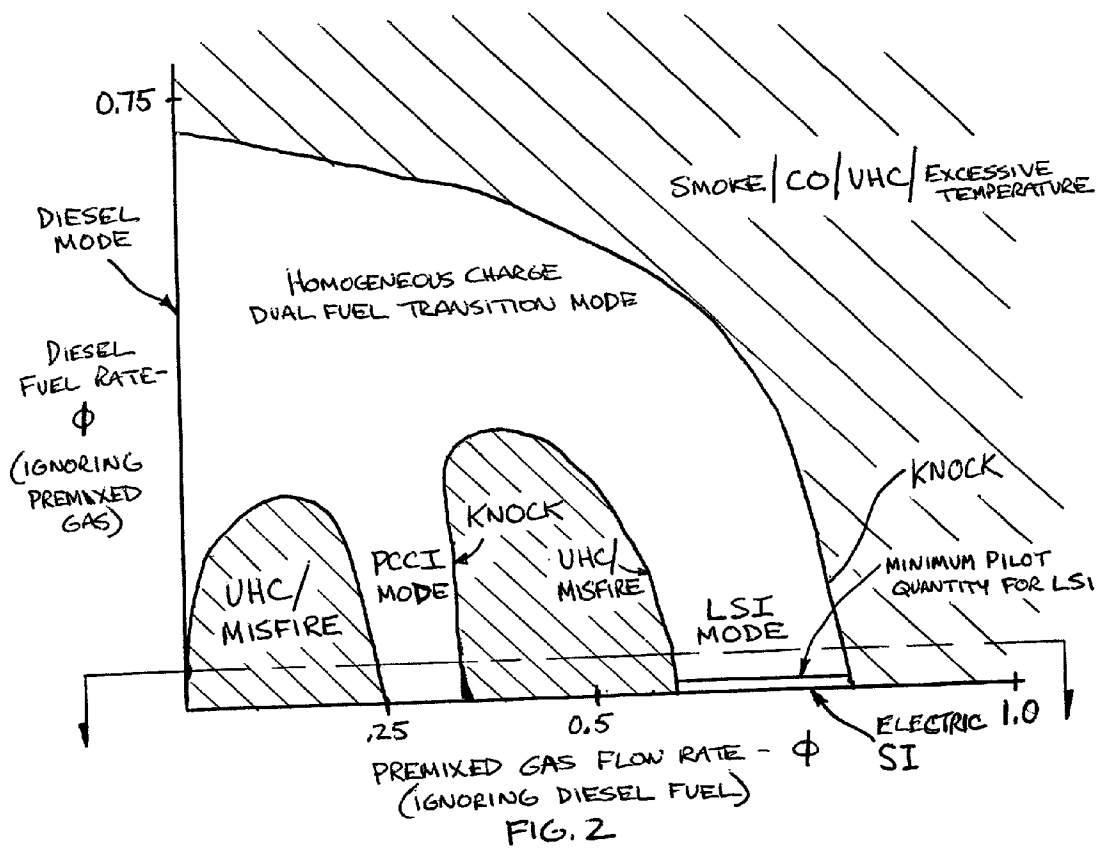 0.75
SMOKE/CO/UHC/EXCESSIVE
TEMPERATURE
DIESEL
MODE
HOMOGENEOUS CHARGE
DUAL FUEL TRANSITION MODE
DIESEL
FUEL RATE-
ϕ
(IGNORING
PREMIXED
GAS)
KNOCK
KNOCK
PCCI
MODE
UHC/
MISFIRE
UHC/
MISFIRE
MINIMUM PILOT
QUANTITY FOR LSI
LSI
MODE
.25
0.5
ELECTRIC
SI
1.0
PREMIXED GAS FLOW RATE - ϕ
(IGNORING DIESEL FUEL)
FIG. 2